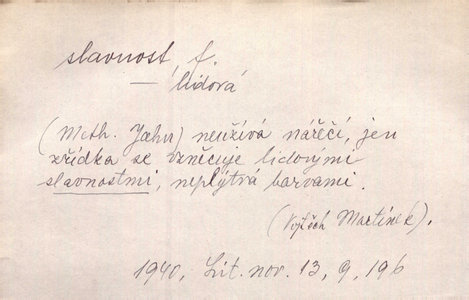 slavnost, f.
— lidová
(Meth. Jahn) neužívá nářečí, jen
zřídka se vzněcuje lidovými
slavnostmi, neplýtvá barvami.
(Vojtěch Martínek).
1940, Lit. nov. 13, 9, 196